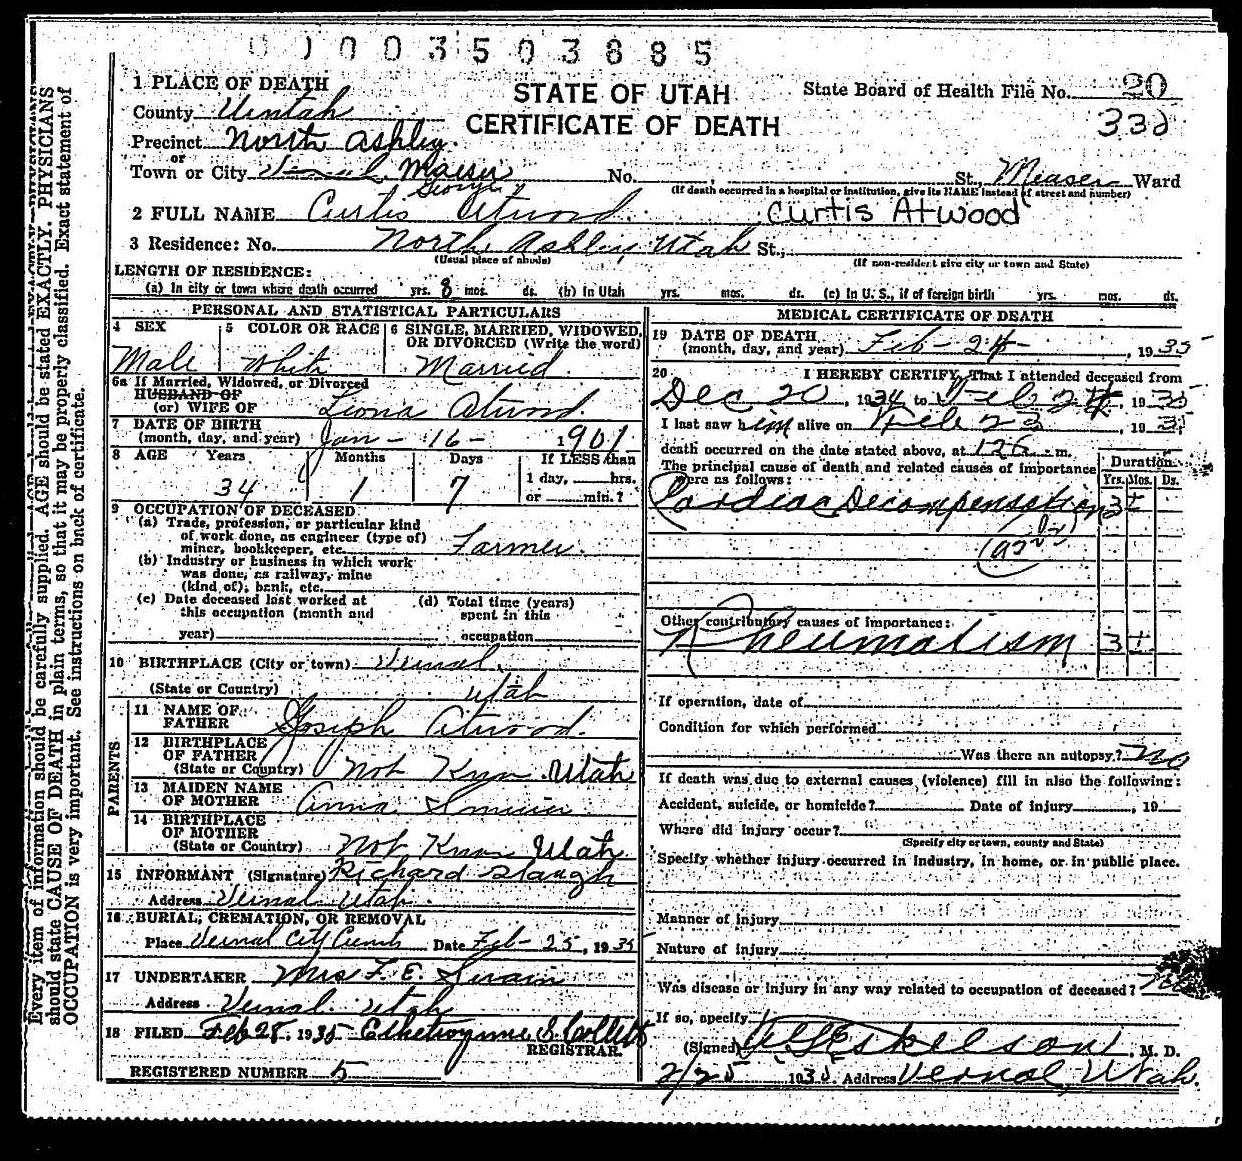 0 0 0 0 3 5 0 3 8 8 5
1 PLACE OF DEATH
STATE OF UTAH
CERTIFICATE OF DEATH
State Board of Health File No. 20
332
County Uintah
Precinct North Ashley.
or
Town or City Vernal Maeser No. , St., Measer Ward
(If death occurred in a hospital or institution, give its NAME instead of street and number)
George
2 FULL NAME Curtis Atwood Curtis Atwood
3 Residence: No. North Ashley, Utah St.,
(Usual place of abode) (If non-resident give city or town and State)
LENGTH OF RESIDENCE:
(a) In city or town where death occurred yrs. 8 mos. ds. (b) In Utah yrs. mos. ds. (c) In U. S., if of foreign birth yrs. mos. ds.
PERSONAL AND STATISTICAL PARTICULARS
4 SEX 5 COLOR OR RACE 6 SINGLE, MARRIED, WIDOWED, OR DIVORCED (Write the word)
Male White Married
6a If Married, Widowed, or Divorced
HUSBAND OF
(or) WIFE OF Leona Atwood.
7 DATE OF BIRTH
(month, day, and year) Jan - 16 - 1901
8 AGE Years Months Days If LESS than
1 day, hrs.
or min.?
34 1 7
9 OCCUPATION OF DECEASED
(a) Trade, profession, or particular kind
of work done, as engineer (type of)
miner, bookkeeper, etc. Farmer.
(b) Industry or business in which work
was done, as railway, mine
(kind of), bank, etc.
(c) Date deceased last worked at
this occupation (month and
year)
(d) Total time (years)
spent in this
occupation
10 BIRTHPLACE (City or town) Vernal,
(State or Country) Utah
PARENTS
11 NAME OF
FATHER Joseph Atwood.
12 BIRTHPLACE
OF FATHER
(State or Country) Not Known Utah
13 MAIDEN NAME
OF MOTHER Anna
14 BIRTHPLACE
OF MOTHER
(State or Country) Not Known Utah
15 INFORMANT (Signature) Richard Slaugh
Address Vernal Utah.
16 BURIAL, CREMATION, OR REMOVAL
Place Vernal City Cemt Date Feb - 25, 1935
17 UNDERTAKER Mrs F. E. Swain
Address Vernal Utah
18 FILED Feb 28, 1935 S. Collett
REGISTRAR.
REGISTERED NUMBER 5
MEDICAL CERTIFICATE OF DEATH
19 DATE OF DEATH
(month, day, and year) Feb - 24 - , 1935
20 I HEREBY CERTIFY, That I attended deceased from
Dec 20, 1934 to Feb 24, 1935
I last saw him alive on Feb 23, 1935
death occurred on the date stated above, at m.
The principal cause of death and related causes of importance
were as follows:
Duration
Yrs. Mos. Ds.
Cardiac Decompensation 3 ±
Other contributory causes of importance:
Rheumatism 3 ±
If operation, date of
Condition for which performed
Was there an autopsy? No
If death was due to external causes (violence) fill in also the following:
Accident, suicide, or homicide? Date of injury , 19
Where did injury occur?
(Specify city or town, county and State)
Specify whether injury occurred in industry, in home, or in public place.
Manner of injury
Nature of injury
Was disease or injury in any way related to occupation of deceased? No
If so, specify
(Signed) Eskelson, M. D.
2/25 1935 Address Vernal, Utah.
Every item of information should be carefully supplied. AGE should be stated EXACTLY. PHYSICIANS
should state CAUSE OF DEATH in plain terms, so that it may be properly classified. Exact statement of
OCCUPATION is very important. See instructions on back of certificate.